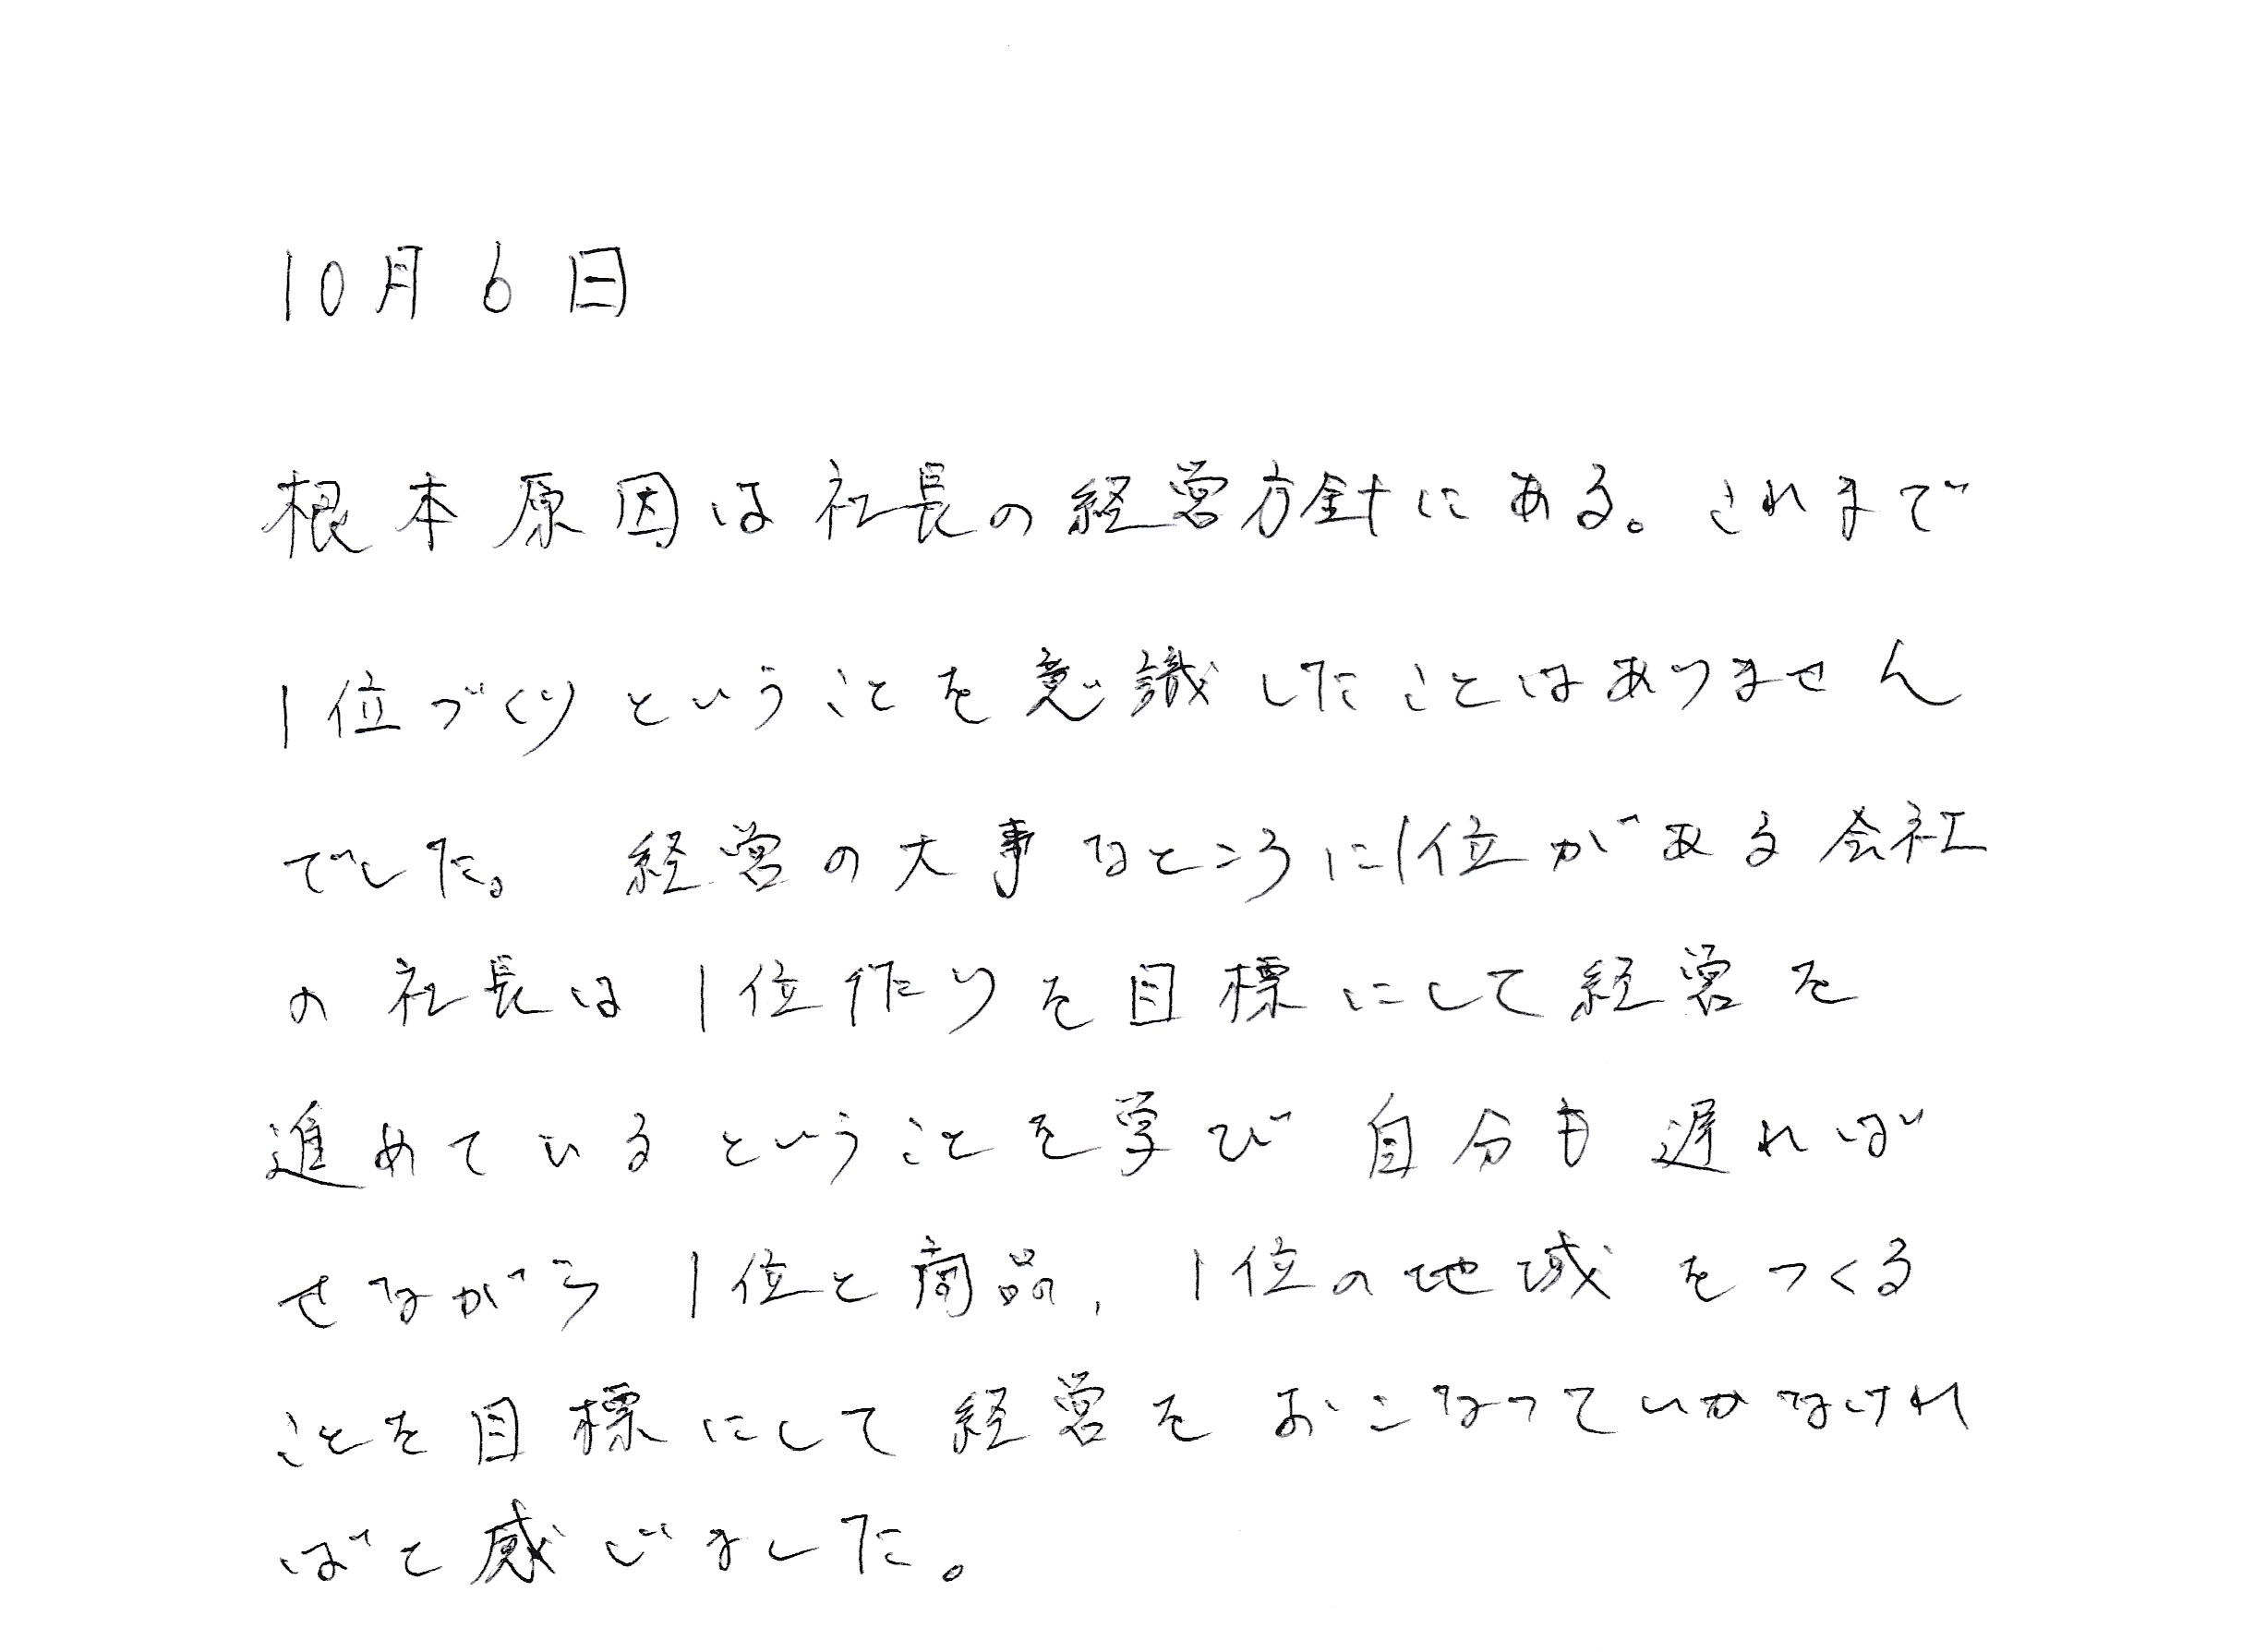 10月6日
根本原因は社長の経営方針にある。これまで
1位づくりということを意識したことはありません
でした。経営の大事なところに1位がある会社
の社長は1位作りを目標にして経営を
進めているということを学び自分も遅れば
せながら1位と商品、1位の地域をつくる
ことを目標にして経営をおこなっていかなけれ
ばと感じました。